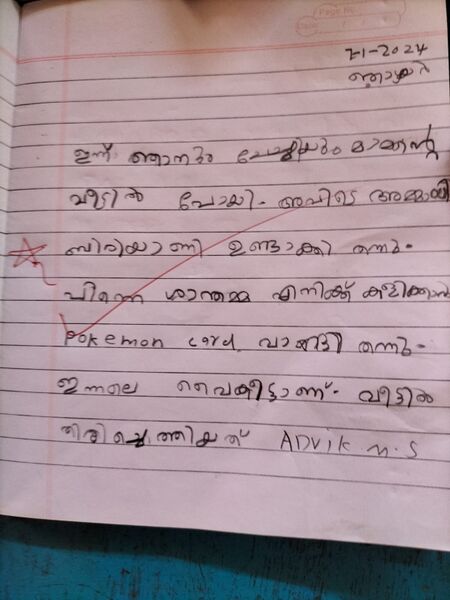 Page No.
Date
7-1-2024
ഞായർ
ഇന്ന് ഞാനും ചേച്ചിയും മാമന്റെ
വീട്ടിൽ പോയി. അവിടെ അമ്മായി
ബിരിയാണി ഉണ്ടാക്കി തന്നു.
പിന്നെ ശാന്തമ്മ എനിക്ക് കളിക്കാൻ
Pokemon card വാങ്ങി തന്നു.
ഇന്നലെ വൈകീട്ടാണ്. വീട്ടിൽ
തിരിച്ചെത്തിയത് ADVIK M.S